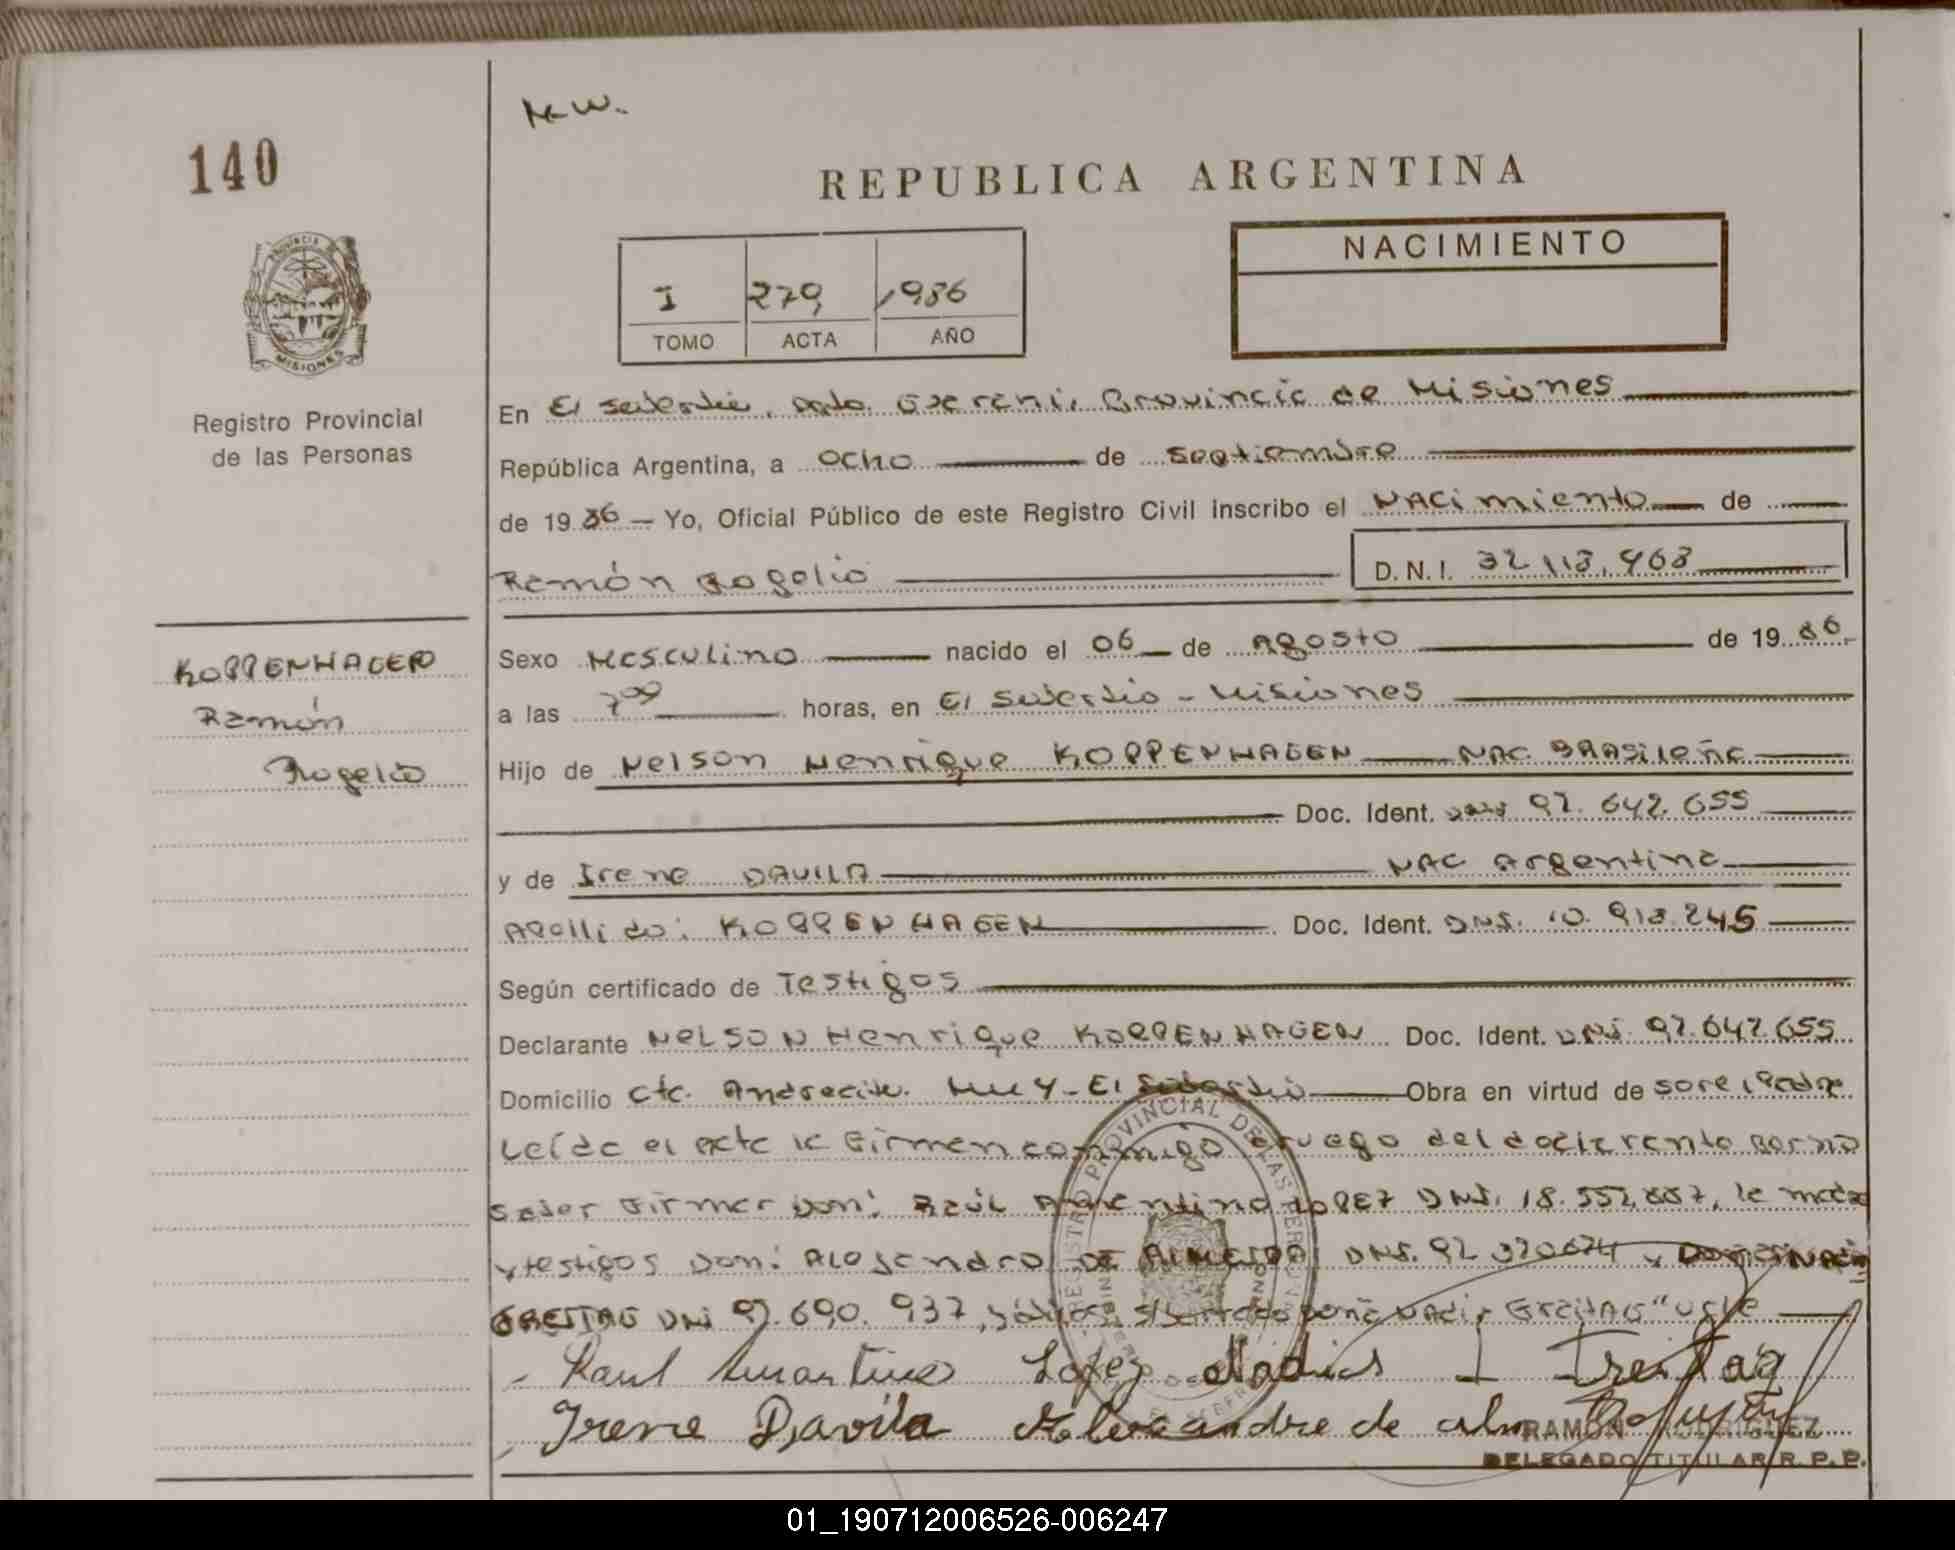 140
M.W.
REPUBLICA ARGENTINA
NACIMIENTO
I 279 1986
TOMO ACTA AÑO
PROVINCIA DE
MISIONES
Registro Provincial
de las Personas
En El Soberbio, Dpto. Guaraní, Provincia de Misiones
República Argentina, a ocho de Septiembre
de 1986 Yo, Oficial Público de este Registro Civil inscribo el NACimiento de
Ramón Rogelio D.N.I. 32.113.468
KOPPENHAGEN
Ramón
Rogelio
Sexo Masculino nacido el 06 de Agosto de 1986
a las 7 00 horas, en El Soberbio - Misiones
Hijo de Nelson Henrique KOPPENHAGEN NAC. BRASileña
Doc. Ident. DNI 92.642.655
y de Irene DAVILA NAC Argentina
Apellido: KOPPENHAGEN Doc. Ident. DNI. 10.913.245
Según certificado de Testigos
Declarante NELSON Henrique KOPPENHAGEN Doc. Ident. DNI. 92.642.655
Domicilio El Soberbio Obra en virtud de ser el Padre
Leída el acta la Firman conmigo a ruego del declarante por no
saber Firmar Don: Raúl Argentino LOPEZ DNI. 18.552.887, la madre
y testigos Don: Alejandro DE ALMEIDA DNI. 92.320674 y
FREITAG DNI 92.690.937, s/borrado Doña Nadir Freitag "vale
Raul Lopez Nadir I Freitag
Irene Davila Alexandre de
REGISTRO PROVINCIAL DE LAS PERSONAS
RAMON RODRIGUEZ
DELEGADO TITULAR R.P.P.
01_190712006526-006247